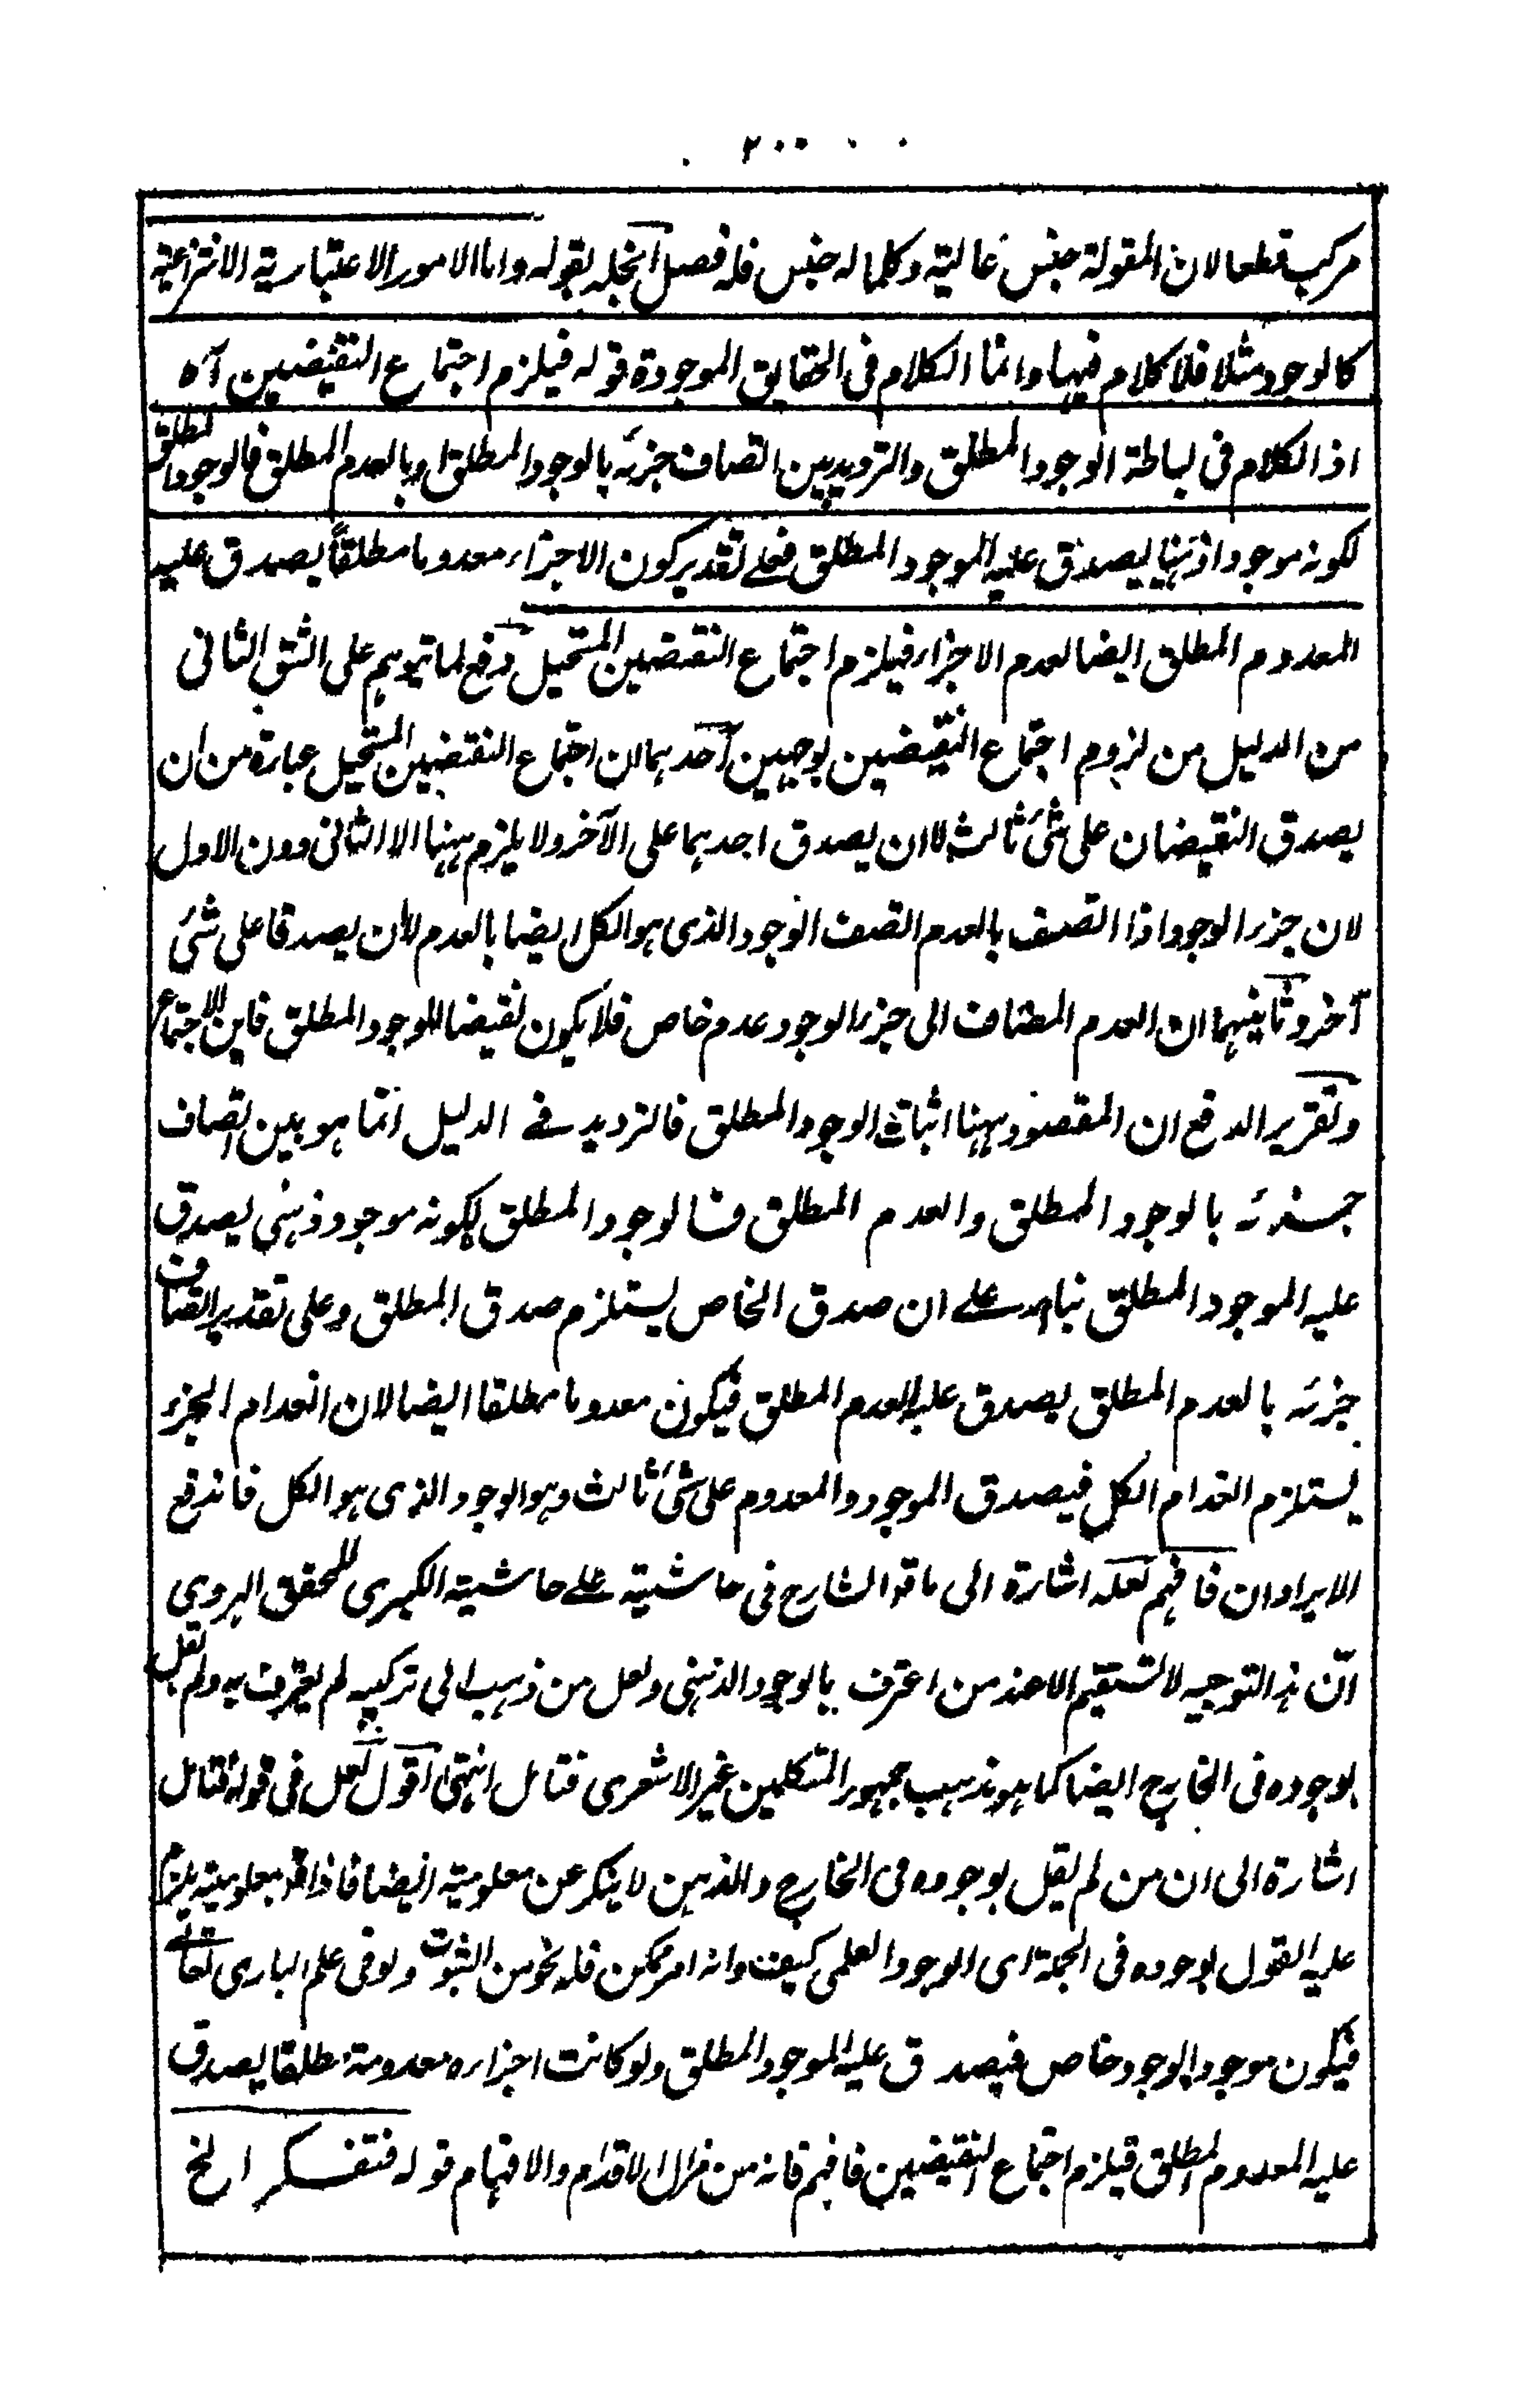 ٢٠٠
مركب قطعا لان المقولة جنس عالية وكلما له جنس فله فصل انجله بقوله واما الامور الاعتبارية الانتزاعية
كالوجود مثلا فلا كلام فيها وانما الكلام فى الحقايق الموجودة قوله فيلزم اجتماع النقيضين آه
اذ الكلام فى بساطة الوجود المطلق والترديد بين اتصاف جزئه بالوجود المطلق او بالعدم المطلق فالوجود المطلق
لكونه موجودا ذهنيا يصدق عليه الموجود المطلق فعلے تقدير كون الاجزاء معدوما مطلقاً يصدق عليه
المعدوم المطلق ايضا لعدم الاجزاء فيلزم اجتماع النقيضين المستحيل دفع لما يتوهم على الشق الثانى
من الدليل من لزوم اجتماع النقيضين بوجهين آحدهما ان اجتماع النقيضين المستحيل عبارة من ان
يصدق النقيضان على شئ ثالث لا ان يصدق احدهما على الآخر ولا يلزم ههنا الا الثانى دون الاول
لان جزء الوجود اذا اتصف بالعدم اتصف الوجود الذى هو الكل ايضا بالعدم لا ان يصدقا على شئ
آخر وثانيهما ان العدم المضاف الى جزء الوجود عدم خاص فلا يكون نقيضا للوجود المطلق فاين الاجتماع
وتقرير الدفع ان المقصود ههنا اثبات الوجود المطلق فالترديد فے الدليل انما هو بين اتصاف
جزئه بالوجود المطلق والعدم المطلق فالوجود المطلق لكونه موجود ذهنى يصدق
عليه الموجود المطلق بناء علے ان صدق الخاص يستلزم صدق المطلق وعلى تقدير اتصاف
جزئه بالعدم المطلق يصدق عليه العدم المطلق فيكون معدوما مطلقا ايضا لان انعدام الجزء
يستلزم انعدام الكل فيصدق الموجود والمعدوم على شئ ثالث وهو الوجود الذى هو الكل فاندفع
الايرادان فافهم لعله اشارة الى ما قال الشارح فى حاشيته علے حاشية الكبرى للمحقق الهروى
انّ هذا التوجيه لا تستقيم الا عند من اعترف بالوجود الذهنى ولعل من ذهب الى تركيبه لم يعترف به ولم يقل
بوجوده فى الخارج ايضا كما هو مذهب جمهور المتكلمين غير الاشعرى فتامل انتهى اقول لعل فى قوله فتامل
اشارة الى ان من لم يقل بوجوده فى الخارج والذهن لا ينكر عن معلومية ايضا فاذا اقر بمعلوميته يلزم
عليه القول بوجوده فى الجملة اى الوجود العلمى كيف وانه امر ممكن فله نحو من الثبوت ولو فى علم البارى تعالے
فيكون موجودا بوجود خاص فيصدق عليه الموجود المطلق ولو كانت اجزاءه معدومة مطلقا يصدق
عليه المعدوم المطلق فيلزم اجتماع النقيضين فافهم فانه من مزال الاقدام والافهام قوله فتفكر الخ